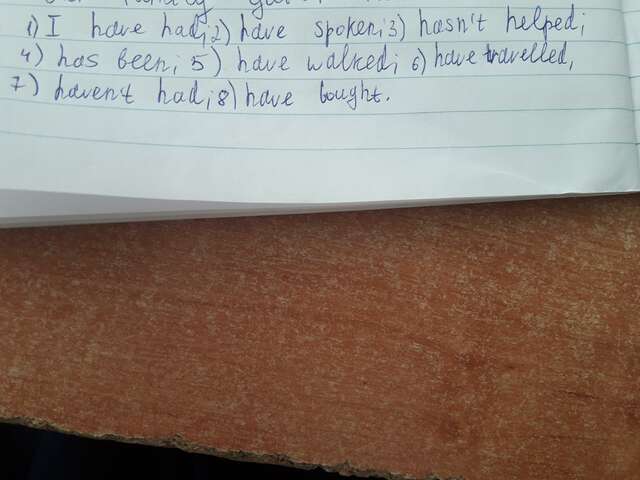 1) I have had; 2) have spoken; 3) hasn't helped;
4) has been; 5) have walked; 6) have travelled,
7) haven't had; 8) have bought.